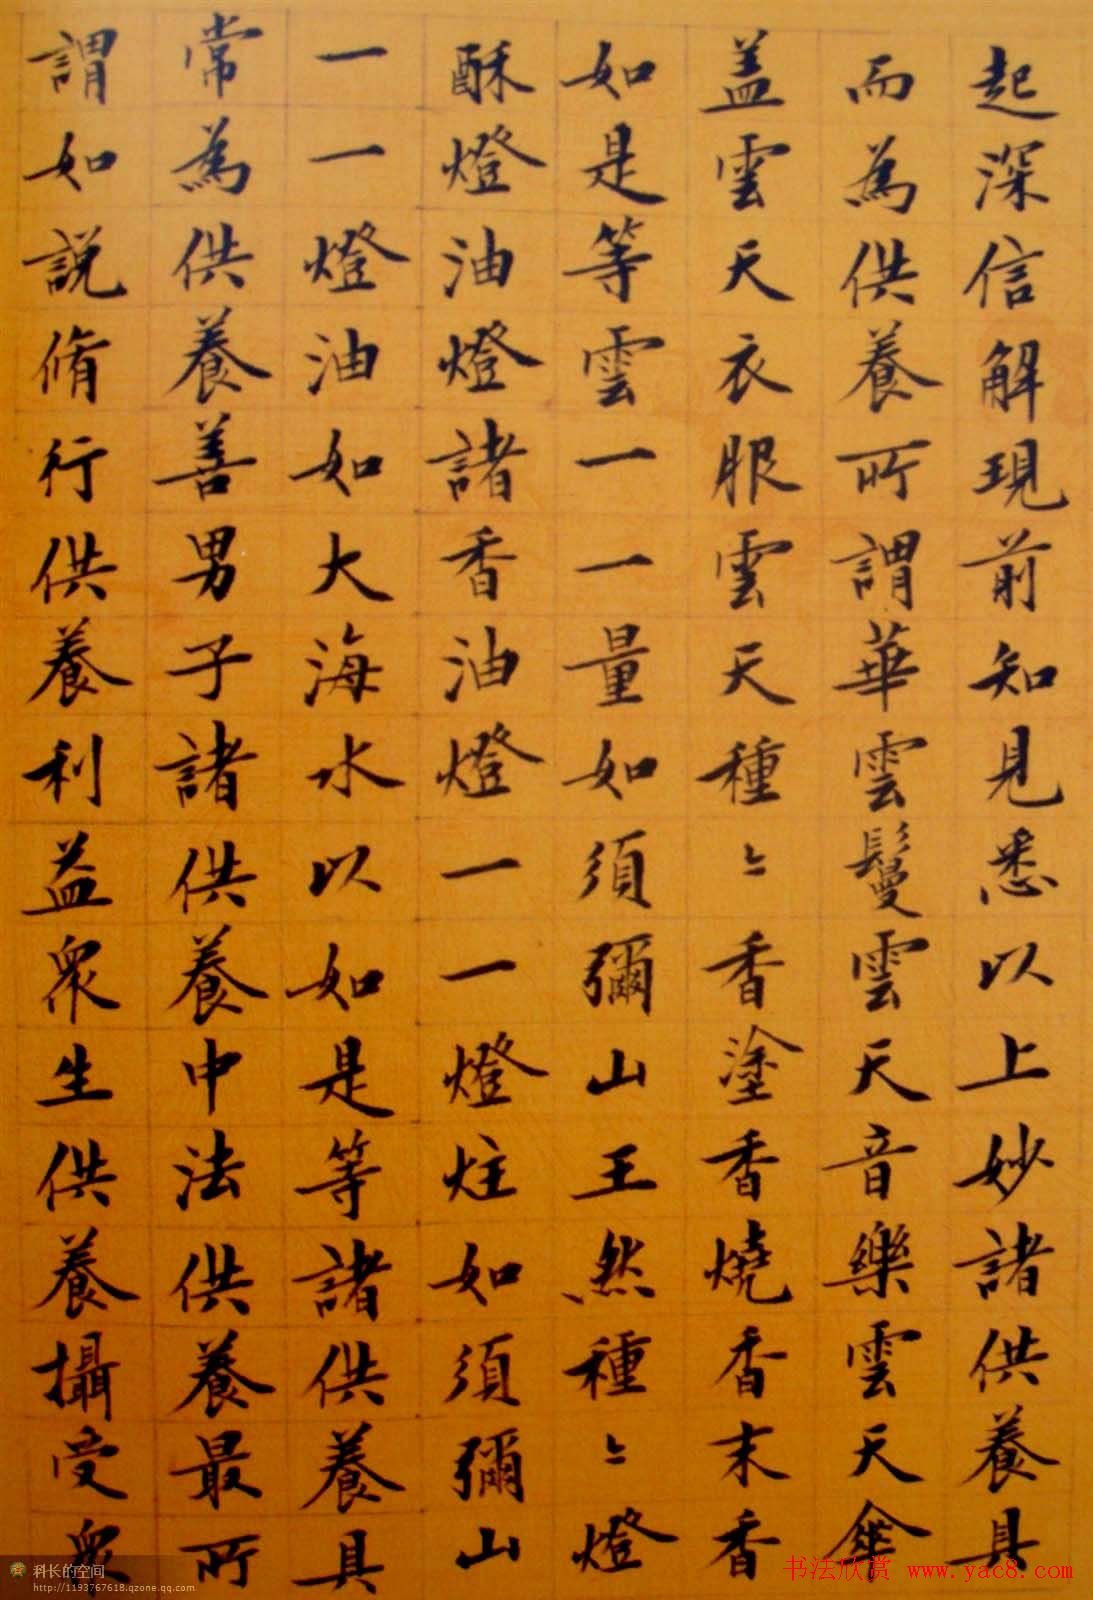 起深信解現前知見悉以上妙諸供養具
而為供養所謂華雲鬘雲天音樂雲天傘
盖雲天衣服雲天種〻香塗香燒香末香
如是等雲一一量如須彌山王然種〻燈
酥燈油燈諸香油燈一一燈炷如須彌山
一一燈油如大海水以如是等諸供養具
常為供養善男子諸供養中法供養最所
謂如說脩行供養利益衆生供養攝受衆
科长的空间
http://1193767618.qzone.qq.com
书法欣赏 www.yac8.com